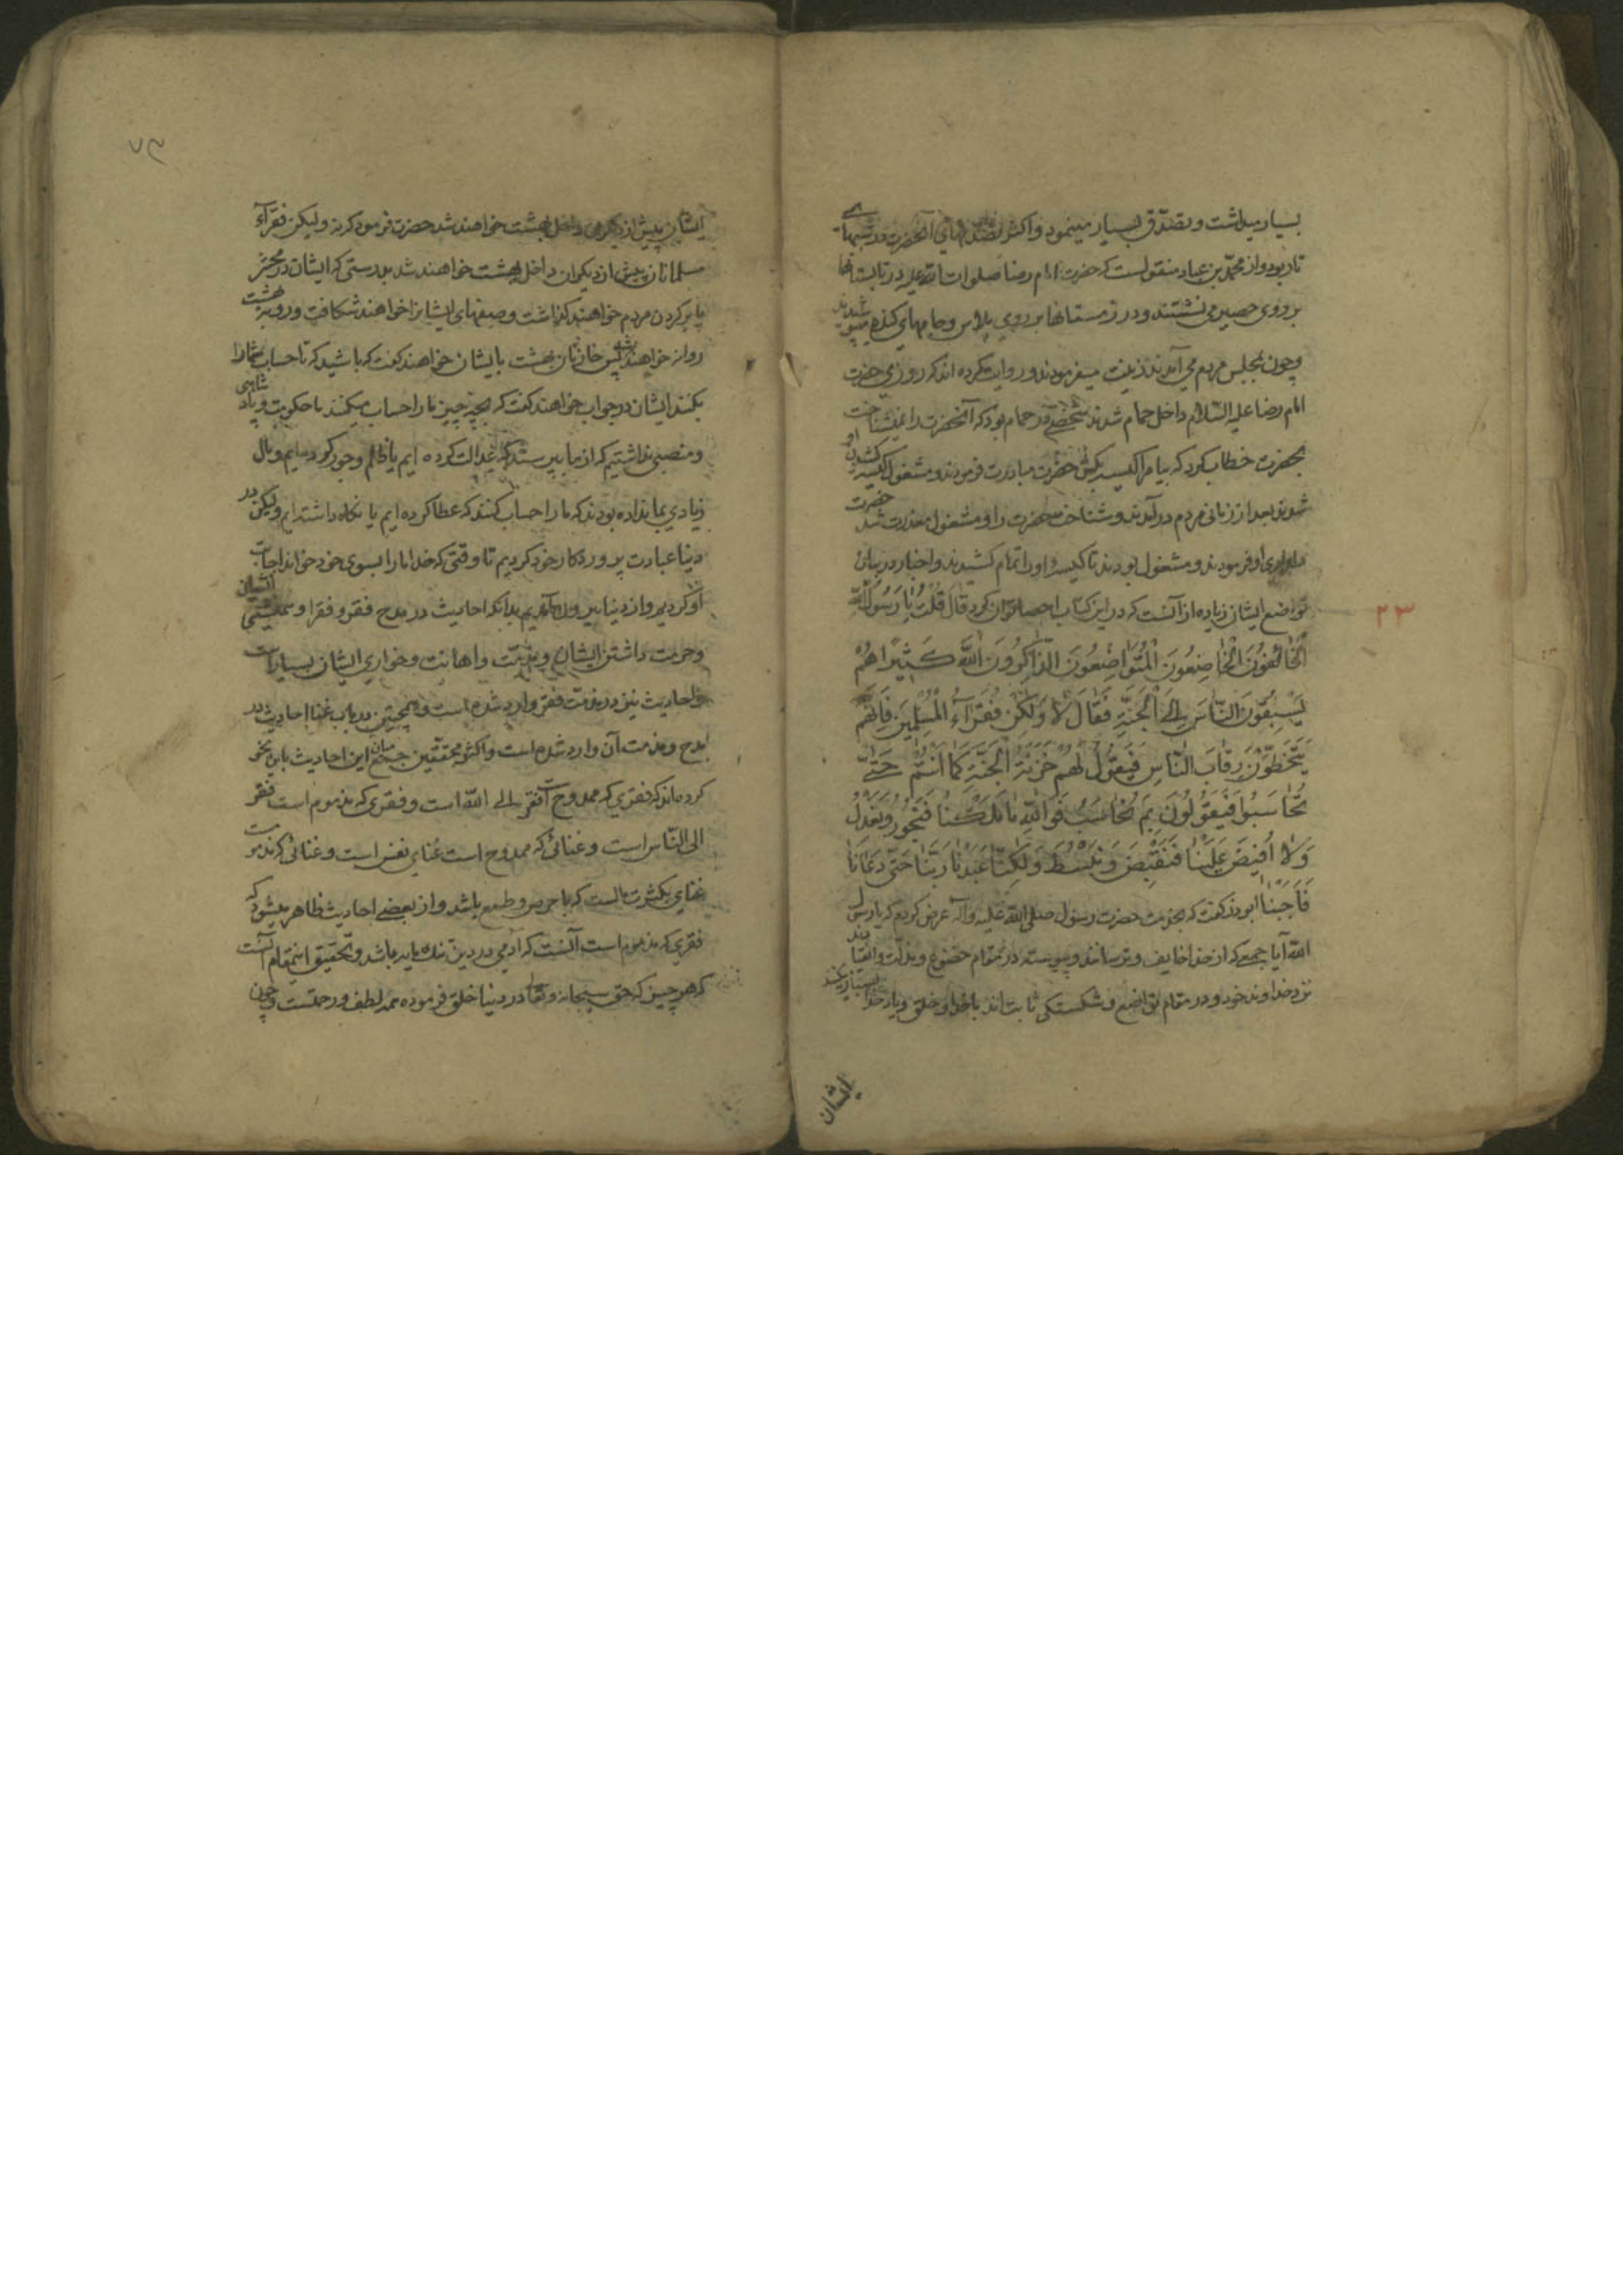 بسیار میداشت و تصدّق بسیار مینمود و اکثر تصدّقهای آنحضرت در شبهای
تار بود و از محمّد بن عباد منقولست که حضرت امام رضا صلوات الله علیه در تابستانها
بر روی حصیر می نشستند و در زمستانها بر روی پلاس و جامهای کنده میپوشیدند
و چون بمجلس مردم می آمدند زینت میفرمودند و روایت کرده اند که روزی حضرت
امام رضا علیه السّلام داخل حمام شدند شخصی در حمام بود که آنحضرت را نمیشناخت
بحضرت خطاب کرد که بیا مرا کیسه بکش حضرت مبادرت فرمودند و مشغول کیسه کشیدن او
شدند بعد از زمانی مردم در آمدند و شناخت حضرت را و مشغول معذرت شد حضرت
دلداری او فرمودند و مشغول بودند تا کیسه او را تمام کشیدند و اخبار در بیان
تواضع ایشان زیاده از آنست که در این کتاب احصا توان کرد قال قُلْتُ یا رَسُولَ اللّه
۲۳
اَلْخائِفُونَ الْخاضِعُونَ الْمُتَواضِعُونَ الذّاکِرُونَ اللّهَ کَثِیْراً هُمْ
یَسْبِقُونَ النّاسَ اِلَی الْجَنَّةِ فَقالَ لا وَلکِنْ فُقَرآءُ الْمُسْلِمینَ فَاِنَّهُمْ
یَتَخَطَّوْنَ رِقابَ النّاسِ فَیَقُولُ لَهُمْ خَزَنَةُ الْجَنَّةِ کَما اَنْتُمْ حَتّی
تُحاسَبُوا فَیَقُولُونَ بِمَ نُحاسَبُ فَوَاللّهِ ما مَلَکْنا فَنَجُورَ وَ نَعْدِلُ
وَلا اُفیضَ عَلَیْنا فَنَقْبِضَ وَ نَبْسُطَ وَلکِنّا عَبَدْنا رَبَّنا حَتّی دَعانا
فَاَجَبْنا ابوذر گفت که بخدمت حضرت رسول صلی اللّه علیه و آله عرض کردم که یا رسول
اللّه آیا جمعی که از خدا خایف و ترسانند و پیوسته در مقام خضوع و مذلّت و انقیادند
نزد خداوند خود و در مقام تواضع و شکستگی ثابت اند با خدا و خلق و یاد خدا بسیار میکنند
ایشان
۷۹
ایشان پیش از دیگران داخل بهشت خواهند شد حضرت فرمود که نه ولیکن فقرآء
مسلمانان پیش از دیگران داخل بهشت خواهند شد بدرستی که ایشان در محشر
پا بر گردن مردم خواهند گذاشت و صفهای ایشانرا خواهند شکافت و رو به بهشت
روانه خواهند شد پس خازنان بهشت بایشان خواهند گفت که باشید که تا حساب شما را
بکنند ایشان در جواب خواهند گفت که بچه چیز ما را حساب میکنند ما حکومت و پادشاهی
و منصبی نداشتیم که از ما بپرسند که عدالت کرده ایم یا ظلم و جور کرده ایم و مال
زیادی بما نداده بودند که ما را حساب کنند که عطا کرده ایم یا نگاه داشته ایم ولیکن در
دنیا عبادت پروردگار خود کردیم تا وقتی که خدا ما را بسوی خود خواند اجابت
او کردیم و از دنیا بیرون آمدیم بدانکه احادیث در مدح فقر و فقرا و همنشینی ایشان
و حرمت داشتن ایشان و مذمّت و اهانت و خواری ایشان بسیار است
و احادیث نیز در مذمّت فقر وارد شده است و همچنین در باب غنا احادیث در
مدح و مذمت آن وارد شده است و اکثر محقّقین جمع میان این احادیث باین نحو
کرده اند که فقری که ممدوح است فقر الی اللّه است و فقری که مذموم است فقر
الی النّاس است و غنائی که ممدوح است غنای نفس است و غنائی که مذموم است
غنای بکثرت مالست که با حرص و طمع باشد و از بعضی احادیث ظاهر میشود که
فقری که مذموم است آنست که آدمی در دین تنک مایه باشد و تحقیق اینمقام آنست
که هر چیز که حق سبحانه و تعالی در دنیا خلق فرموده همه لطف و رحمتست و چون